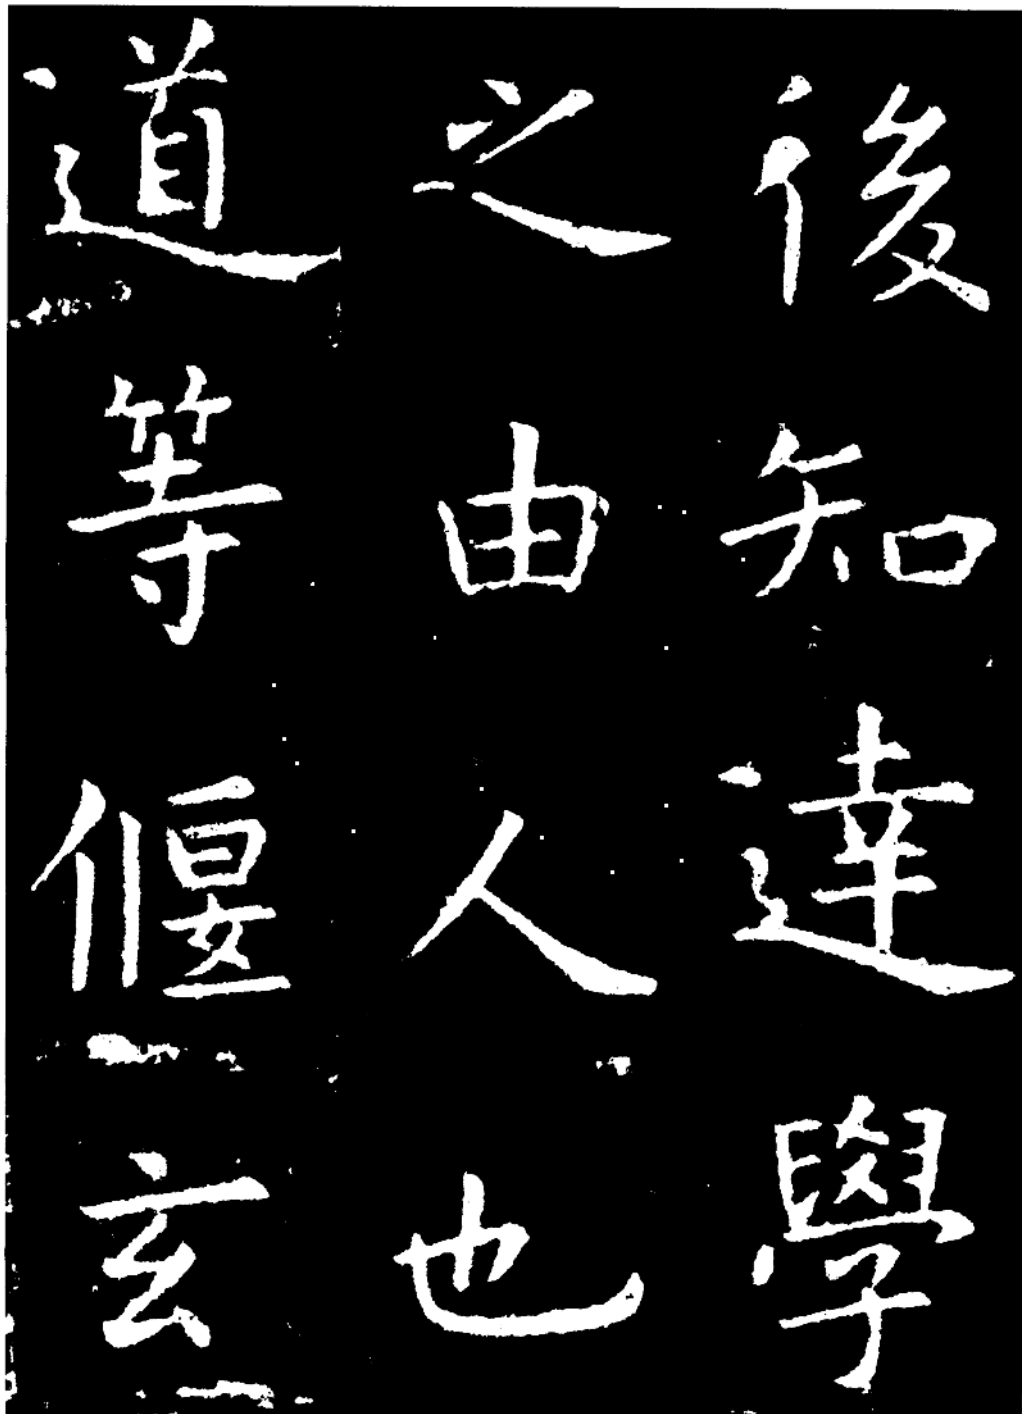 後知達學
之由人也
道等偃玄